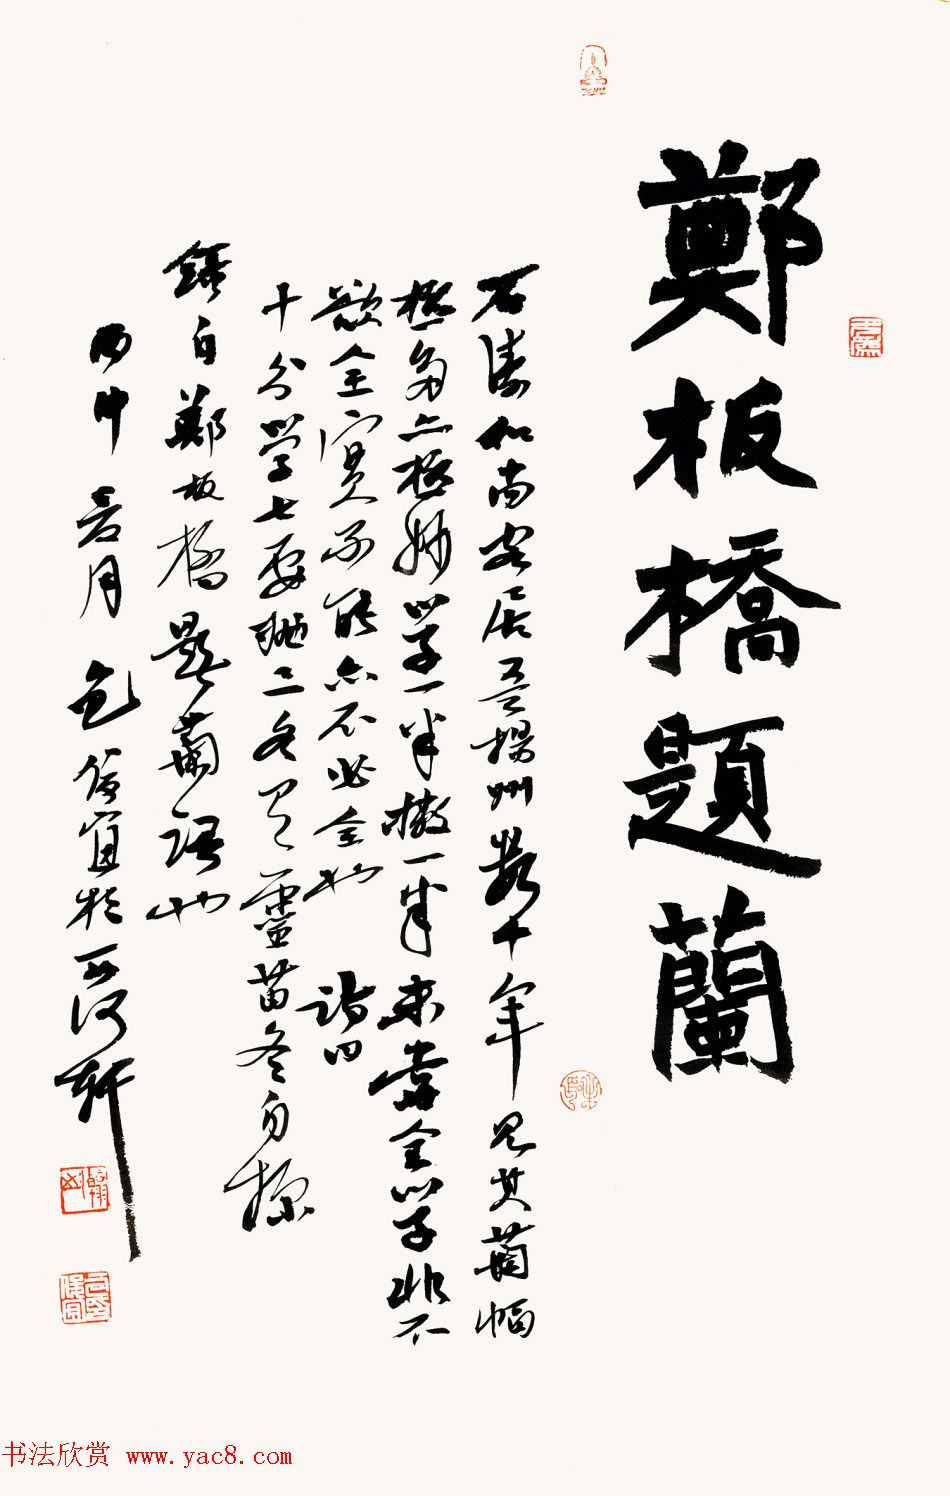 鄭板橋題蘭
石濤和尚客居吾揚州數十年見其蘭幅
極多亦極妙學一半撇一半未嘗全學非不
欲全實不能亦不必全也 詩曰
十分學七要拋三各有靈苗各自探
錄自鄭板橋題蘭語也
丙申 月 包俊宜於 軒
书法欣赏 www.yac8.com